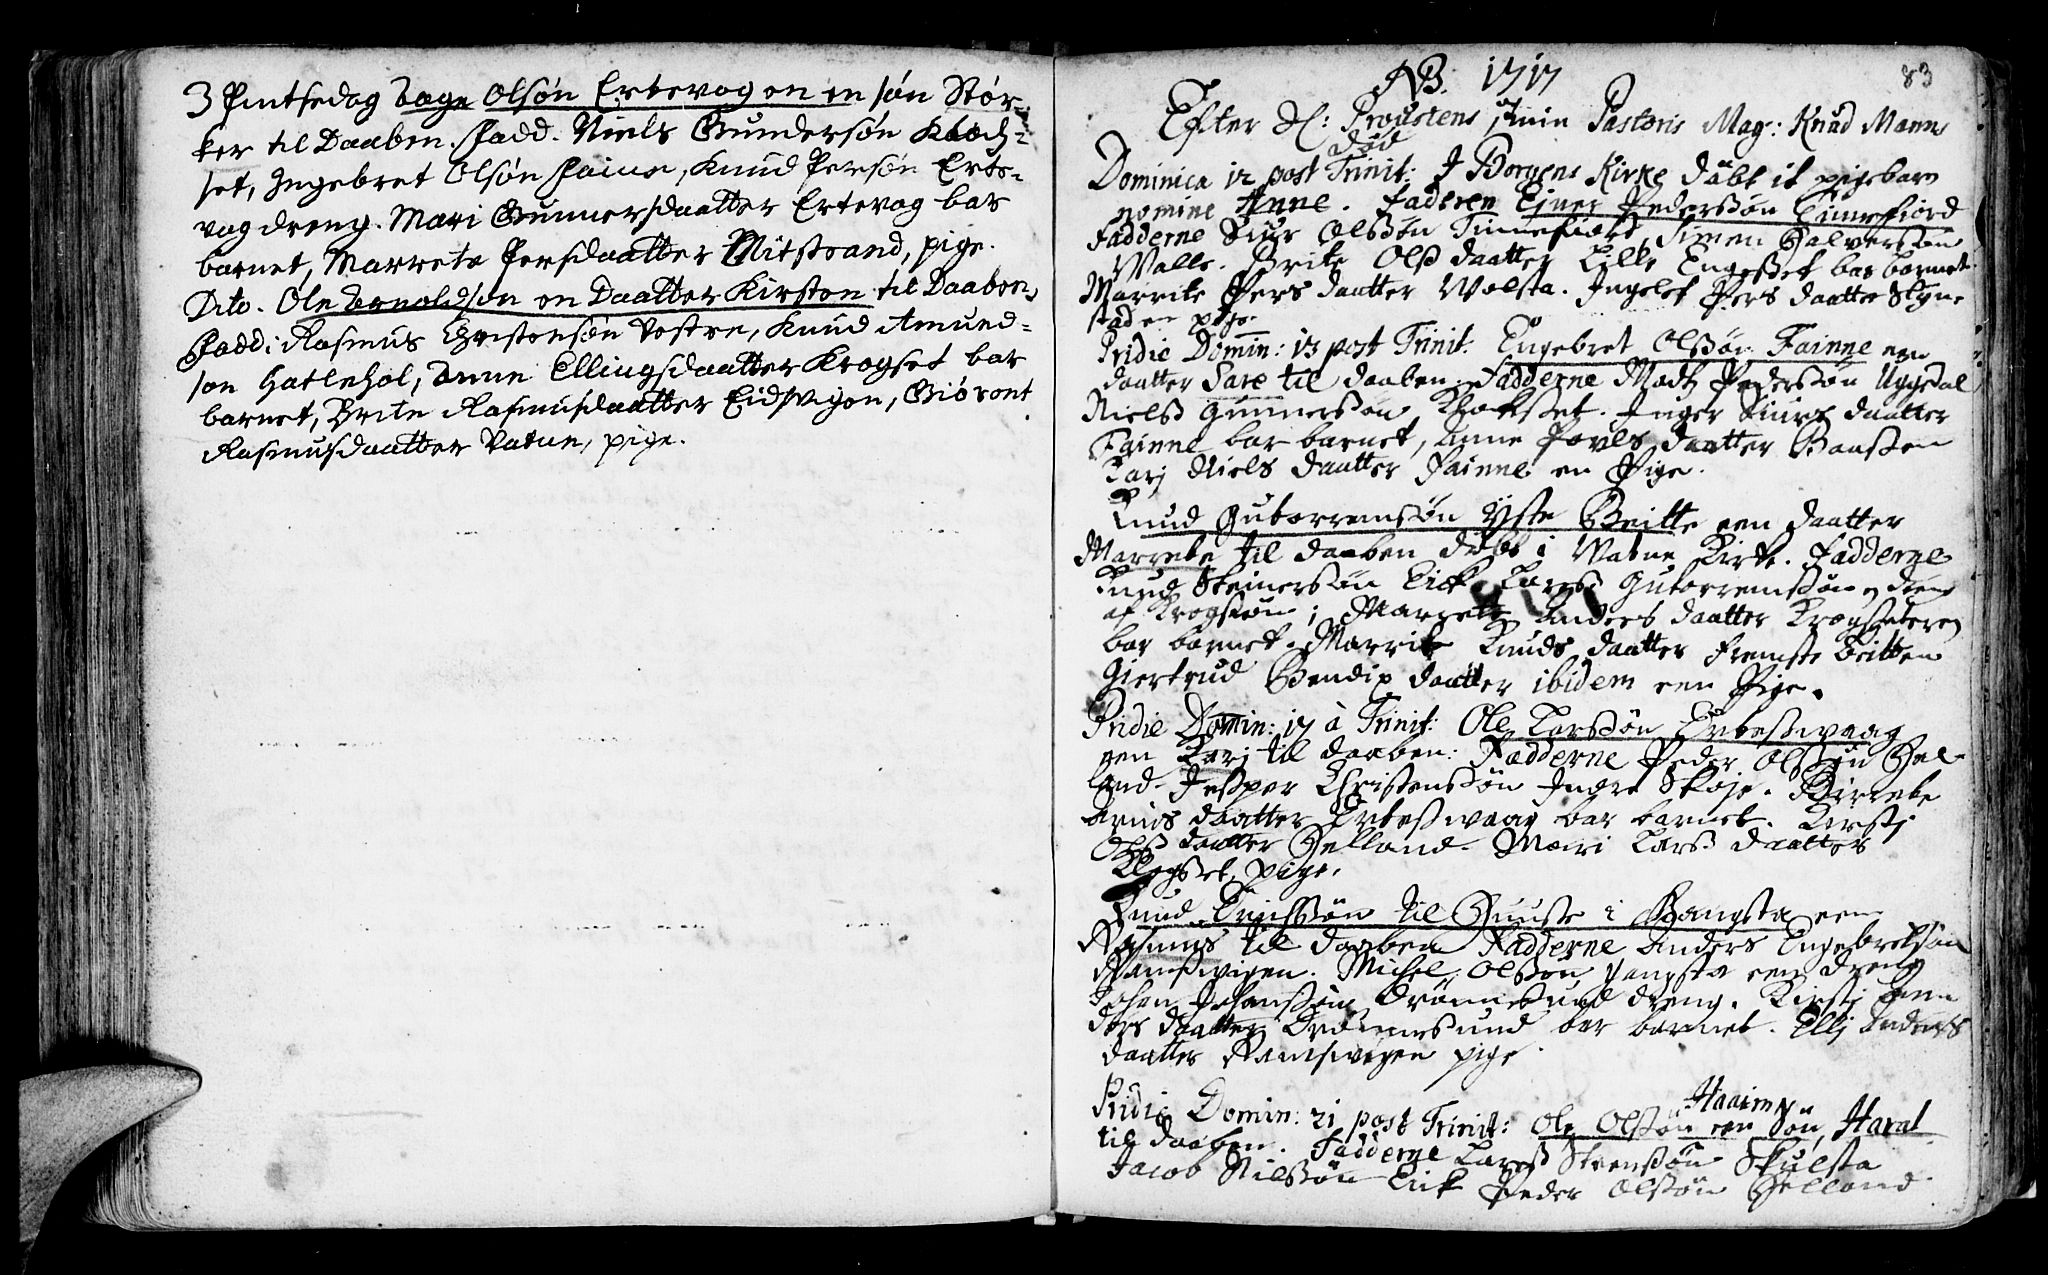 3 Pintsedag Aage Olsøn Ertevog en en søn Stør-
ker til Daaben. fadd. Niels Gundersøn Kloch-
set, Ingebret Olsøn Fainne, Knud Persøn Erte-
vog dreng. Mari Gunnersdaatter Ertevog bar
barnet, Marrete Persdaatter Mitstrand, pige.
Dito. Ole Arnoldsøn en Daatter Kirsten til Daaben,
Fadd: Rasmus Christensøn Vestre, Knud Amund-
søn Hatlehol, Anne Ellingsdaatter Krogset bar
barnet, Brite Rasmusdaatter Eidsvigen, Giøront
Rasmusdaatter Vatne, pige.
NB. 1717
83
Efter H: Proustens min Pastoris Mag: Knud Manns
Död
Dominica 12 post Trinit: J Borgens Kirke däbt it pigebarn
nomine Anne. Faderen Ejner Pederssøn Tinnefiord
Fadderne Siur Olssøn Tinnefiord, Simen Halverssøn
Walle. Brite Olss daatter Lille Engesset bar barnet.
Marrite Pers daatter Wolsta. Ingelef Pers daatter Skyne
stad en pige.
Pridie Domin: 13 post Trinit. Engebret Olssøn Fainne een
daatter Sare til daaben. Fadderne Madtz Pederssøn Uggedal
Nielss Gunnerssøn Klockset. Inger Siurs daatter
Fainne bar barnet, Anne Povels daatter Baassen
Karj Niels daatter Fainne en Pige.
Knud Gutormssøn Yste Britte een daatter
Marrete til daaben däbt i Vatne Kirke. Fadderne
Knud Steinerssøn Eick Larss Gutorremssøn og dreng
af Krogssøn; Marrete Anders daatter Krogsæteren
bar barnet. Marrite Knuds daatter Fremste Britten
Giertrud Bendix daatter ibidem een Pige.
Pridie Domin: 17 à Trinit: Ole Larssøn Ertessvaag
een Karj til daaben: Fadderne Peder Olssøn Hel-
land. Jesper Christenssøn Indre Skoje. Birrete
Arnis daatter Ertessvaag bar barnet. Kirstj
Olss daatter Helland. Mari Larss daatter
Klogset, pige.
Knud Ericssøn til Huuse i Gangsta een
Rasmus til daaben Fadderne Anders Engebretssøn
Ramsvigen. Michel Olssøn Gangsta een dreng
Johan Johanssøn Drönnesund dreng. Kirstj Ann
ders daatter Drönnesund bar barnet. Ellj Anderss
daatter Ramsvigen pige.
Pridie Domin: 21 post Trinit: Ole Olssøn Haaim een Søn, Haral
til daaben. Fadderne Larss Steenssøn Skulsta
Jacob Nilssøn Eick Peder Olssøn Helland